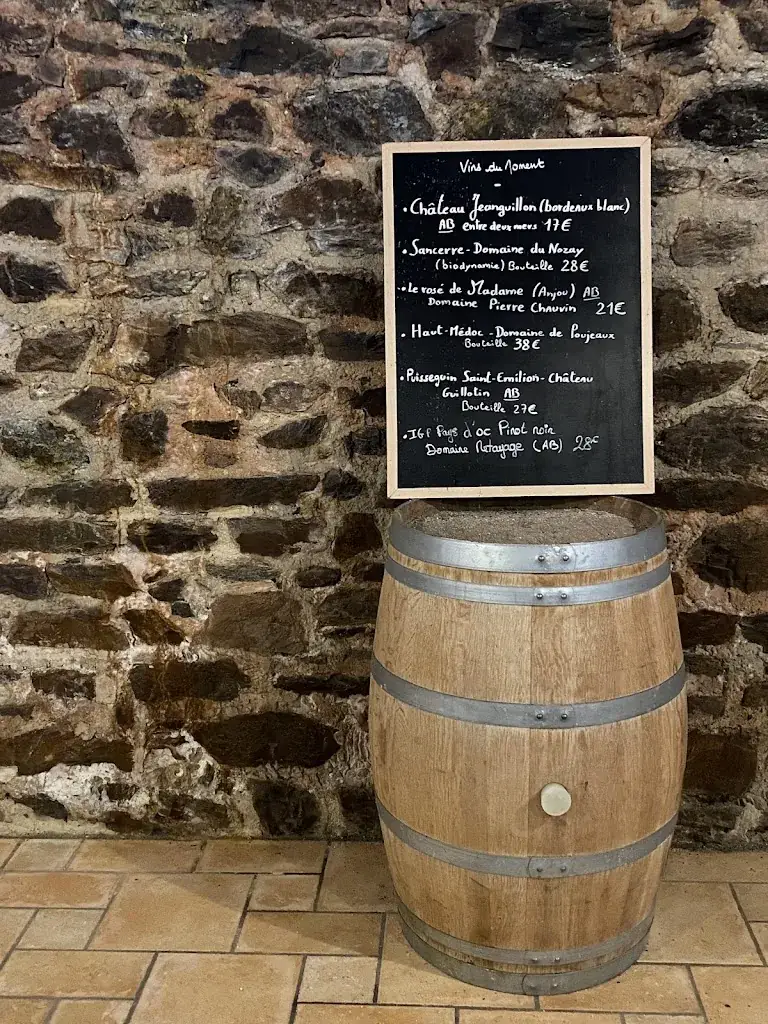 Vins du Moment
-
• Château Jeanguillon (bordeaux blanc)
AB entre deux mers 17€
• Sancerre - Domaine du Nozay
(biodynamie) Bouteille 28€
• Le rosé de Madame (Anjou) AB
Domaine Pierre Chauvin 21€
• Haut-Médoc - Domaine de Poujeaux
Bouteille 38€
• Puisseguin Saint-Emilion - Château
Guillotin AB
Bouteille 27€
• IGP Pays d'oc Pinot noir
Domaine (AB) 28€